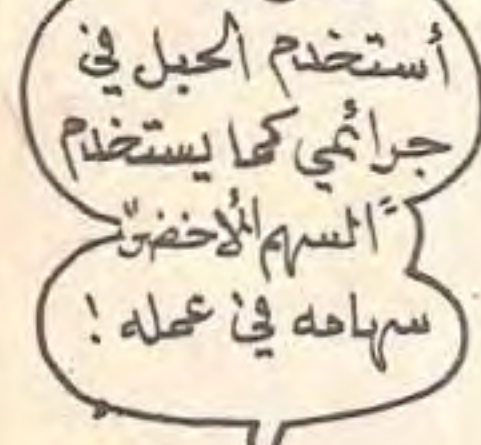 أستخدم الحبل في
جرائمي كما يستخدم
"السهم الأخضر"
سهامه في عمله !